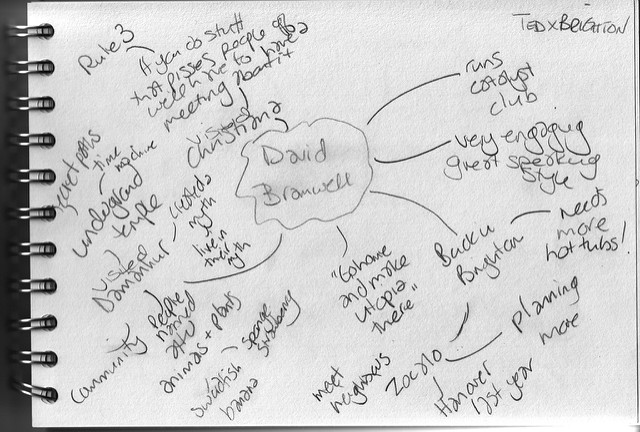 TEDxBRIGHTON
David
Bramwell
runs
catalyst
club
very engaging
great speaking
style
Back in
Brighton
needs
more
hot tubs!
Zocalo
planning
more
Hanover
last year
meet
neighbours
"Go home
and make
utopia
there"
visited
Damanhur
created a
myth
live in
their
myth
underground
temple
time
machine
secret paths
community
people
named
after
animals + plants
sponge
strawberry
swordfish
banana
visited
Christiana
Rule 3
If you do stuff
that pisses people off
we'll have to have a
meeting about it